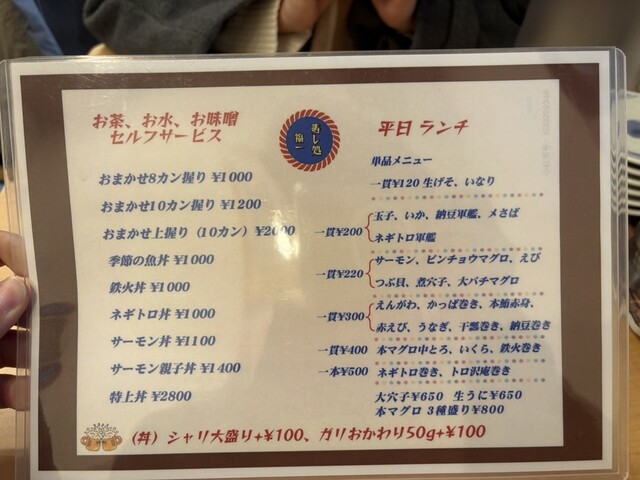 お茶、お水、お味噌
セルフサービス
おまかせ8カン握り ¥1000
おまかせ10カン握り ¥1200
おまかせ上握り（10カン）¥2000
季節の魚丼 ¥1000
鉄火丼 ¥1000
ネギトロ丼 ¥1000
サーモン丼 ¥1100
サーモン親子丼 ¥1400
特上丼 ¥2800
平日 ランチ
単品メニュー
一貫¥120 生げそ、いなり
一貫¥200
玉子、いか、納豆軍艦、〆さば
ネギトロ軍艦
一貫¥220
サーモン、ビンチョウマグロ、えび
つぶ貝、煮穴子、大バチマグロ
一貫¥300
えんがわ、かっぱ巻き、本鮪赤身、
赤えび、うなぎ、干瓢巻き、納豆巻き
一貫¥400 本マグロ中とろ、いくら、鉄火巻き
一本¥500 ネギトロ巻き、トロ沢庵巻き
大穴子¥650 生うに¥650
本マグロ 3種盛り¥800
(丼) シャリ大盛り+¥100、ガリおかわり50g+¥100